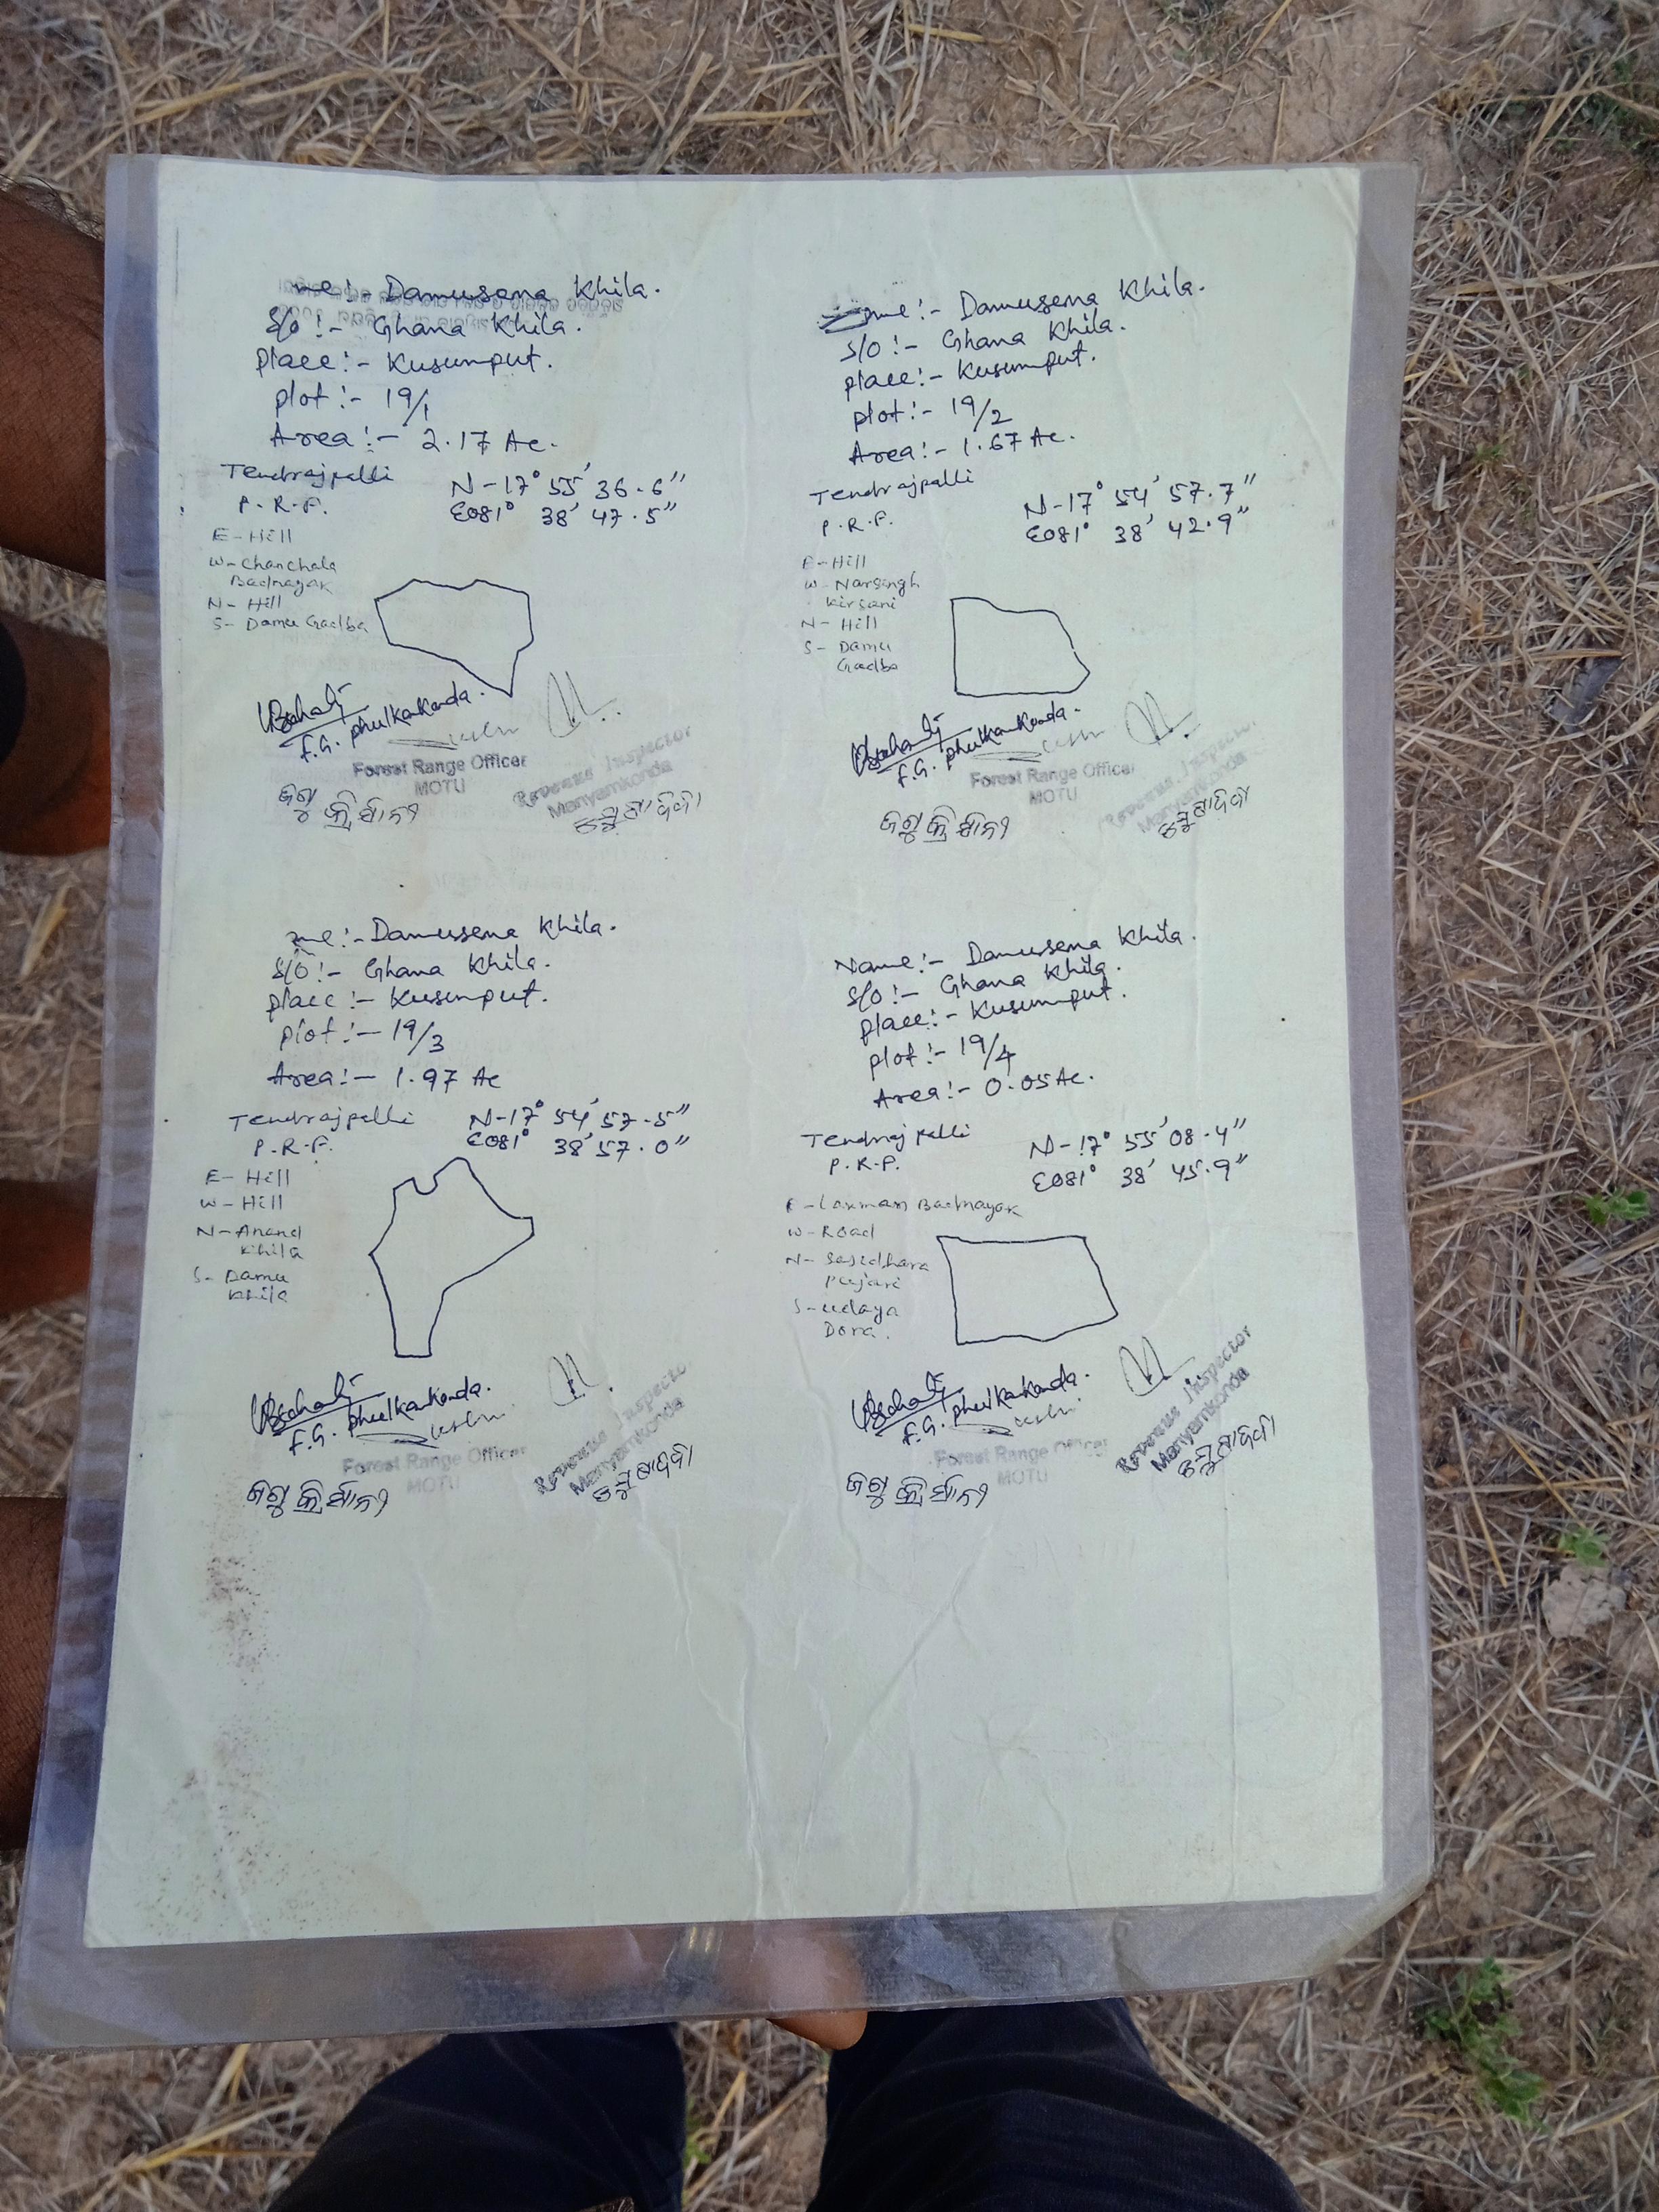 me:- Damusena Khila.
S/o:- Ghana Khila.
place:- Kusumput.
plot:- 19/1
Area:- 2.17 Ac.
Tendrajpalli
P.R.F.
N-17° 55' 36.6"
E081° 38' 47.5"
E-Hill
W-Chanchala
Badnayak
N-Hill
S- Damu Gadba
F.G. phulkankonda.
Forest Range Officer
MOTU
Revenue Inspector
Manyamkonda
me:- Damusena Khila.
S/o:- Ghana Khila.
place:- Kusumput.
plot:- 19/2
Area:- 1.67 Ac.
Tendrajpalli
P.R.F.
N-17° 54' 57.7"
E081° 38' 42.9"
E-Hill
W-Narsingh
Kirsani
N-Hill
S- Damu
Gadba
F.G. phulkankonda.
Forest Range Officer
MOTU
Revenue Inspector
Manyamkonda
me:- Damusena Khila.
S/o:- Ghana Khila.
place:- Kusumput.
plot:- 19/3
Area:- 1.97 Ac
Tendrajpalli
P.R.F.
N-17° 54' 57.5"
E081° 38' 57.0"
E-Hill
W-Hill
N-Anand
Khila
S-Damu
Khila
F.G. phulkankonda.
Forest Range Officer
MOTU
Revenue Inspector
Manyamkonda
Name:- Damusena Khila.
S/o:- Ghana Khila.
place:- Kusumput.
plot:- 19/4
Area:- 0.05 Ac.
Tendrajpalli
P.R.F.
N-17° 55' 08.4"
E081° 38' 45.9"
E-Laxman Badnayak
W-Road
N-Sasidhara
Pujari
S-Udaya
Dora.
F.G. phulkankonda.
Forest Range Officer
MOTU
Revenue Inspector
Manyamkonda